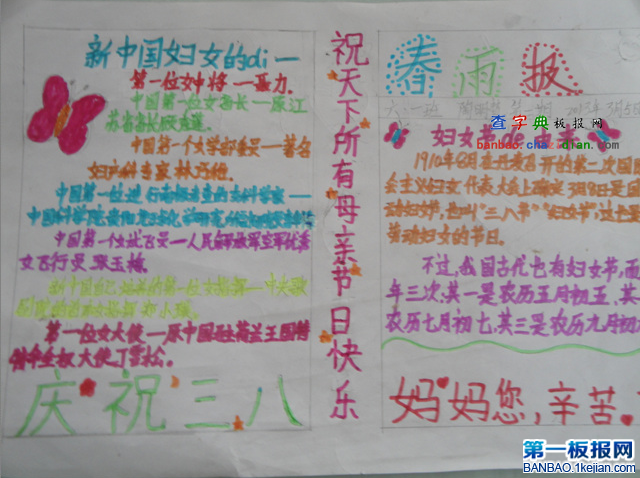 新中国妇女的di一
第一位女中将一聂力.
中国第一位女省长一原江
苏省省长顾秀莲.
中国第一个女学部委员一著名
妇产科专家林巧稚.
中国第一位进行南极考查的女科学家一
中国第一个女试飞员一人民解放军空军优秀
女飞行员张玉梅.
第一位女大使一原中国驻荷兰王国特
命全权大使丁雪松。
庆祝三八
祝天下所有母亲节日快乐
春雨报
查字典板报网
banbao.chazidian.com
妇女节的由来
1910年8月在丹麦召开的第二次国际
会主义妇女代表大会上确定3月8日是
动妇女节,也叫"三八节""妇女节",这
劳动妇女的节日.
不过,我国古代也有妇女节,而
年三次,其一是农历五月初五,其
农历七月初七,其三是农历九月初
妈妈您,辛苦
第一板报网
BANBAO.1kejian.com